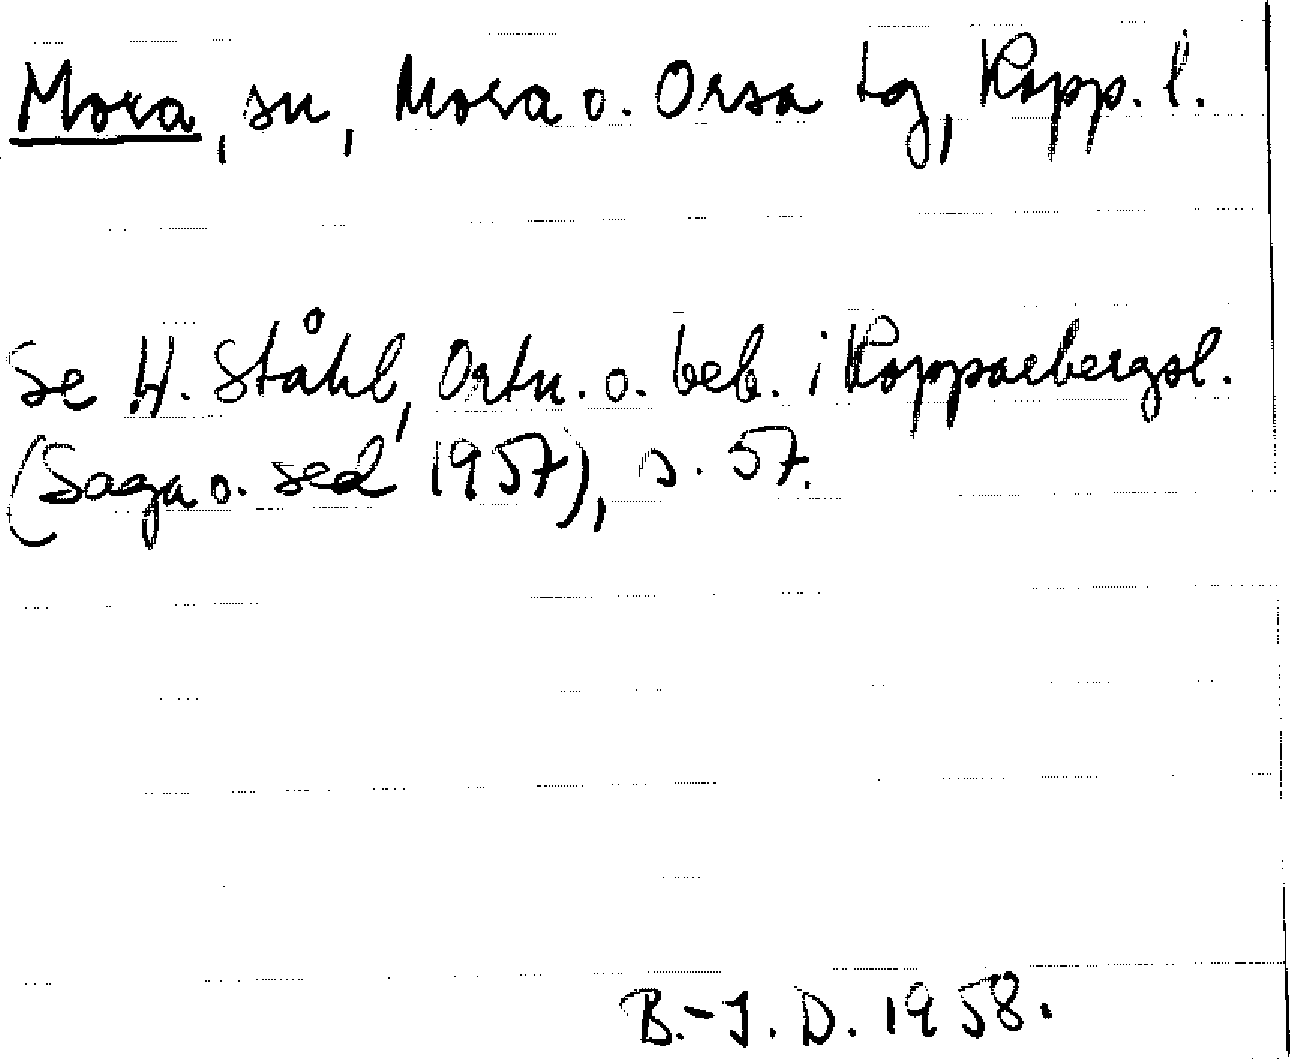 Mora, sn, Mora o. Orsa tg, Kopp. l.
Se H. Ståhl, Ortn. o. beb. i Kopparbergsl.
(Saga o. sed 1957), s. 57.
B.-J. D. 1958.